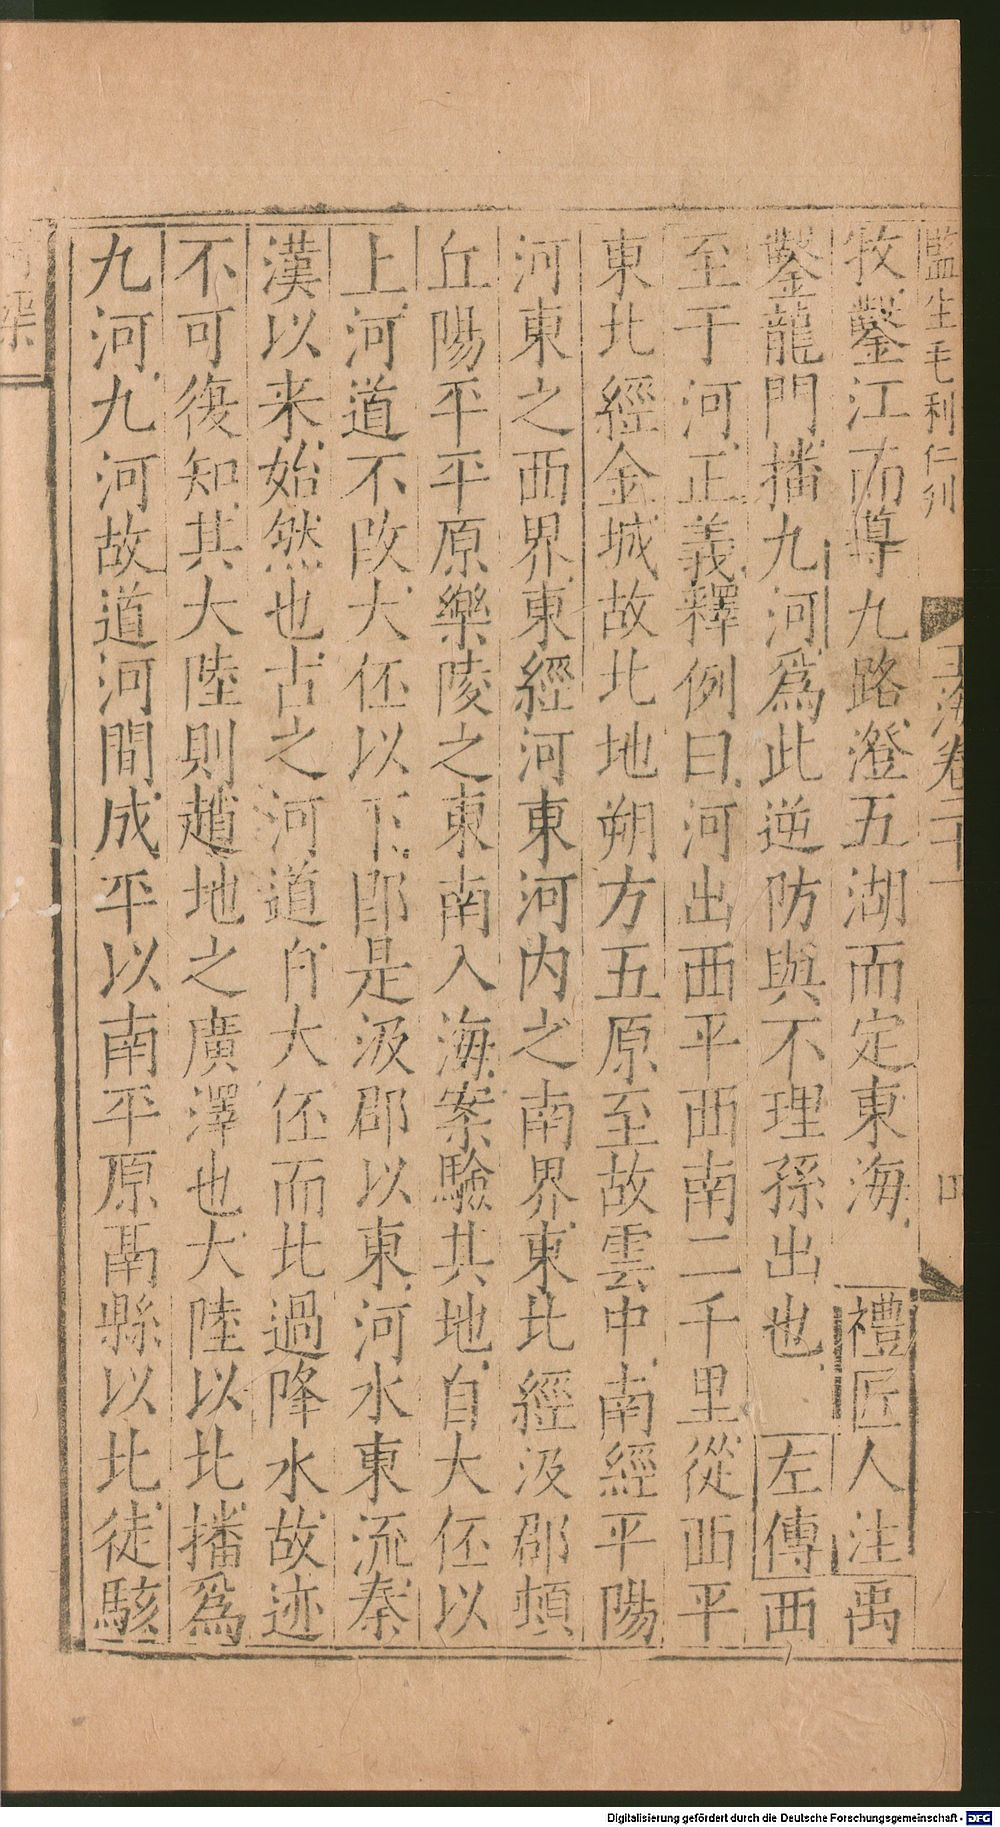 監生毛利仁刋
玉海卷二十一
四
牧鑿江而導九路澄五湖而定東海禮匠人注禹
鑿龍門播九河爲此逆防與不理孫出也左傳西
至于河正義釋例曰河出西平西南二千里從西平
東北經金城故北地朔方五原至故雲中南經平陽
河東之西界東經河東河内之南界東北經汲郡頓
丘陽平平原樂陵之東南入海案驗其地自大伾以
上河道不改大伾以下即是汲郡以東河水東流秦
漢以来始然也古之河道自大伾而北過降水故迹
不可復知其大陸則趙地之廣澤也大陸以北播爲
九河九河故道河間成平以南平原鬲縣以北徒駭
渠
Digitalisierung gefördert durch die Deutsche Forschungsgemeinschaft - DFG